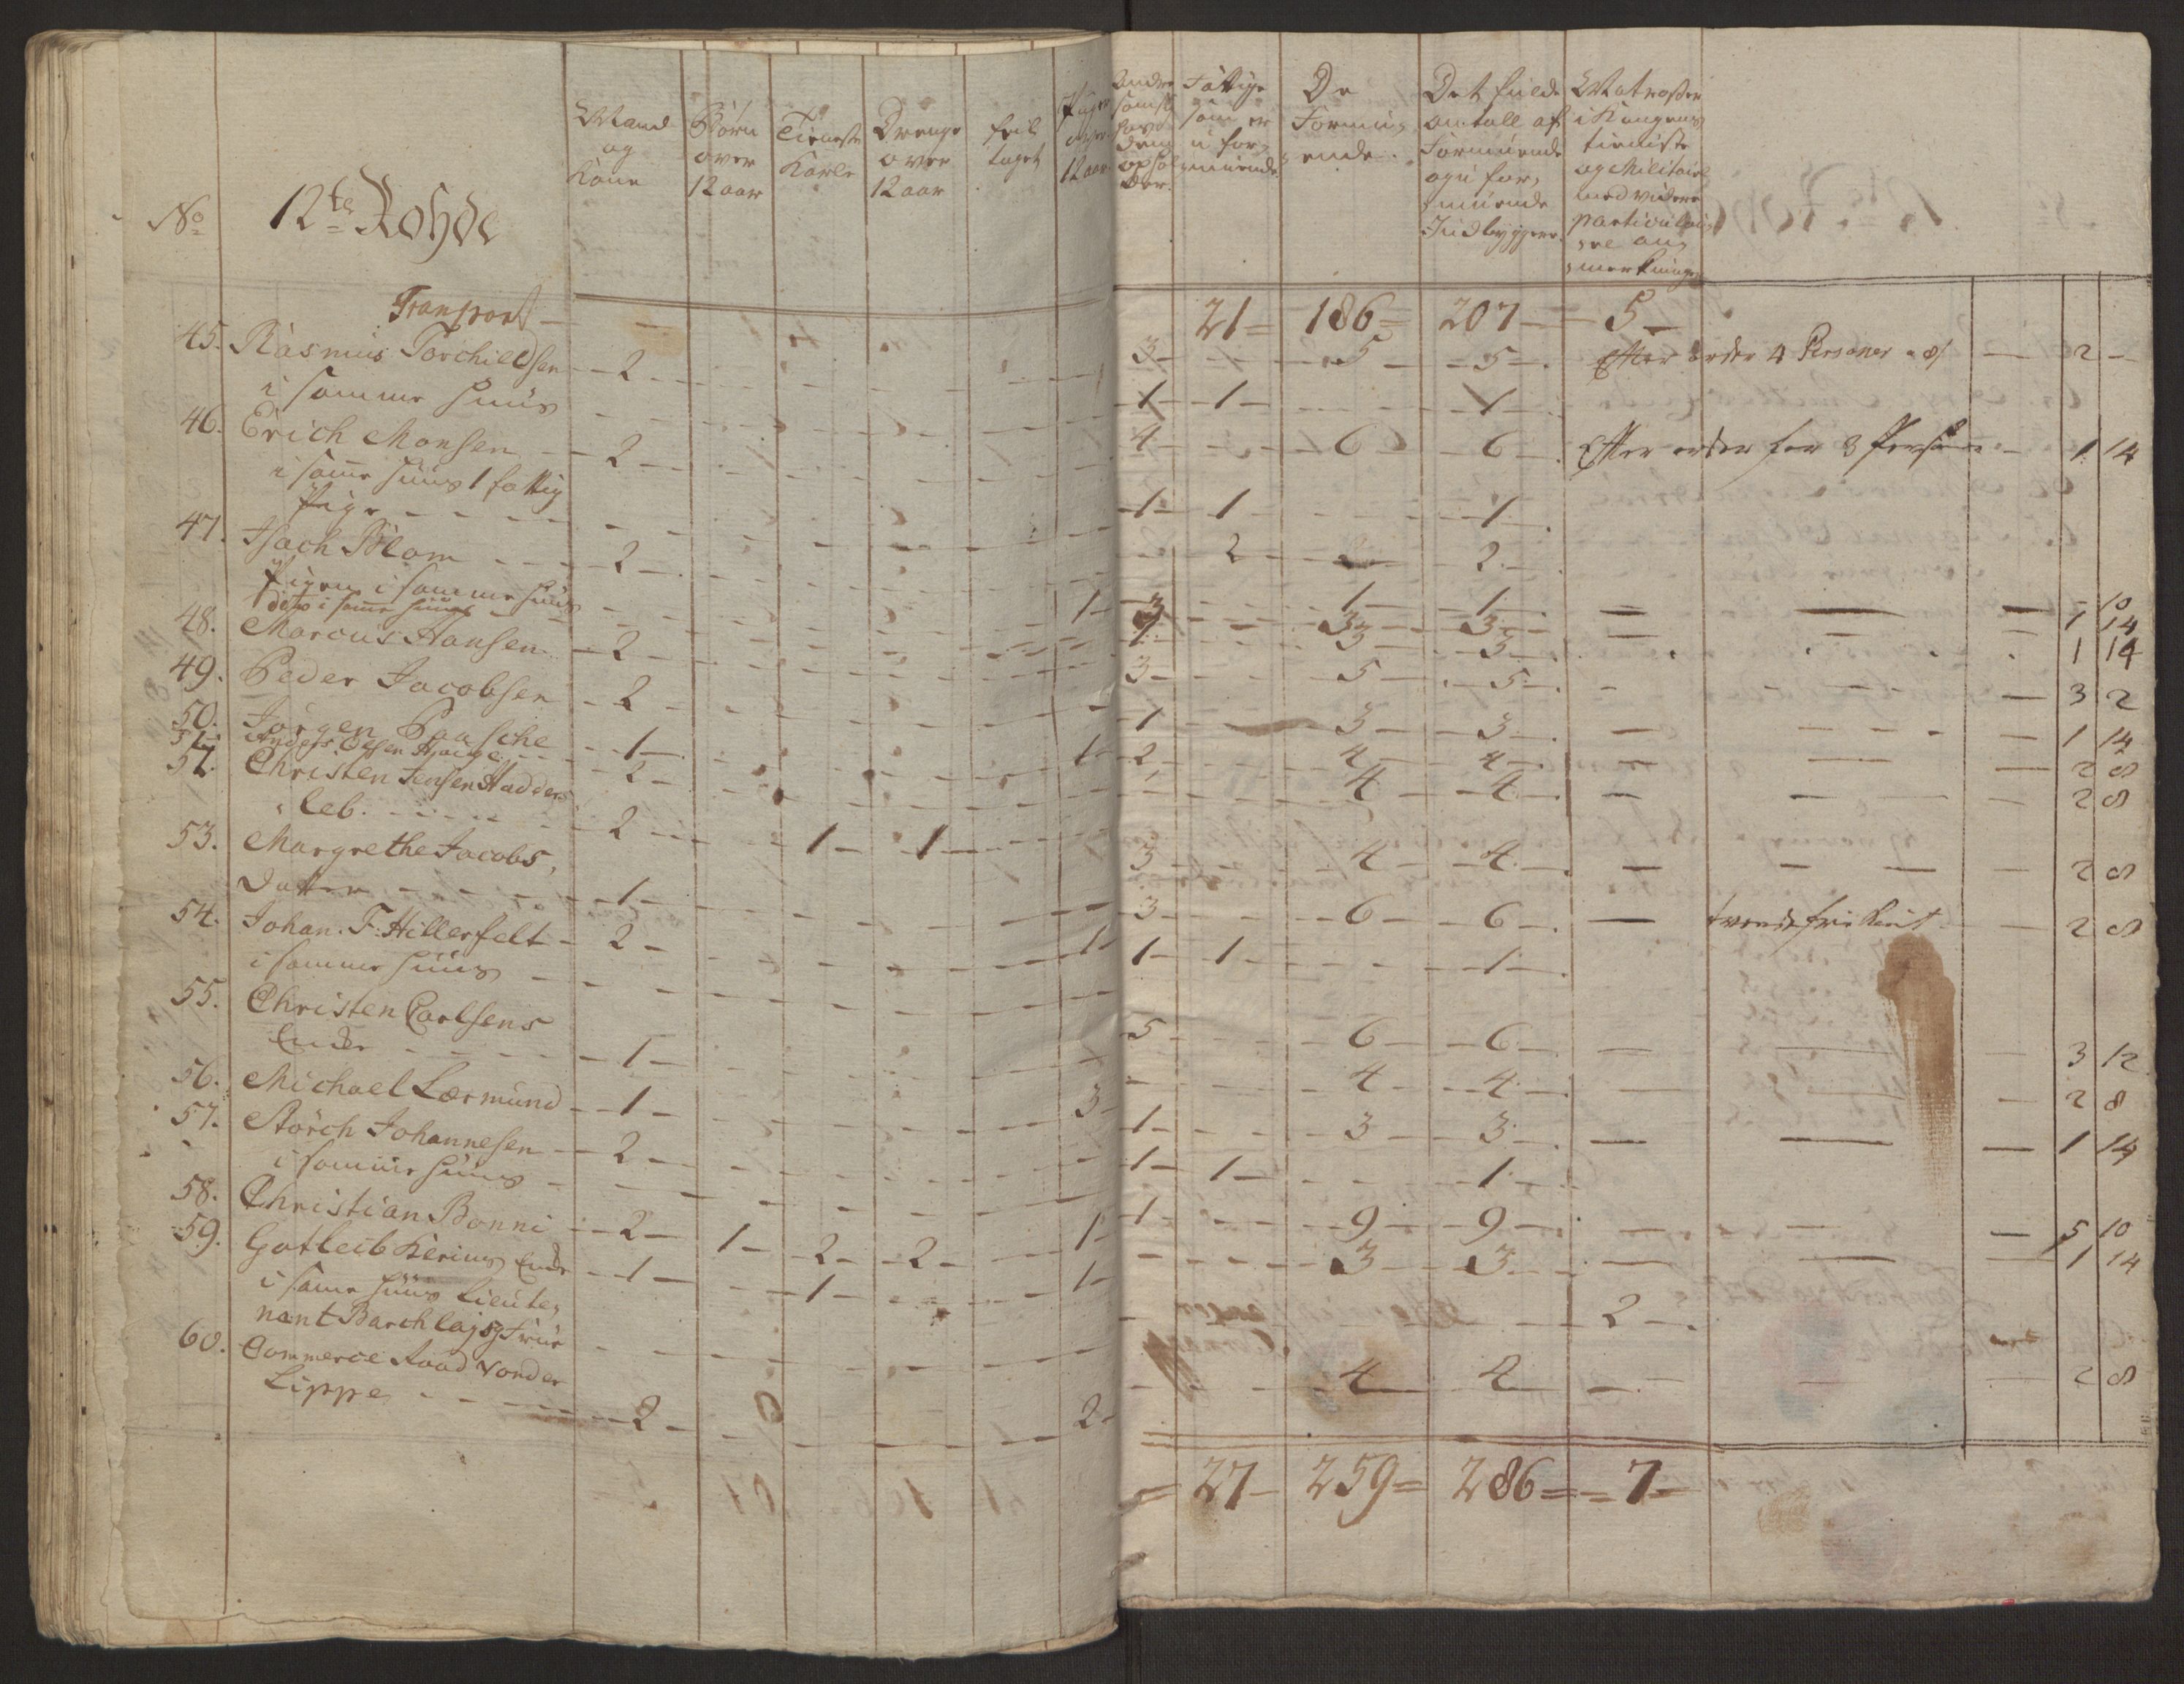 No 12te Rohde
Mand og Kone
Børn over 12 aar
Tieneste Karle
Drenge over 12 aar
Piger over 12 aar
Fattige som er u formuende
De Formuende
Det fulde antall af Formuende og u formuende Indbyggere
Matroser i Kongens tieniste og Militaire med videre particulaire anmerkninger
Transport — 21 = 186 = 207 — 5 —
45. Rasmus Torchildsen — 2 — 3 — 5 — 5 — Efter order 4 Personer a 8/ — 2 —
i samme Huus — 1 — 1 — 1 —
46. Erich Monsen — 2 — 4 — 6 — 6 — Efter order for 3 Personer — 1 14
i same Huus 1 fattig
Pige — 1 — 1 — 1 —
47. Isach Blom — 2 — 2 — 2 —
Pigen i samme Huus — 1 — 1 — 1 — 10
dito i same Huus — 3 — 3 — 3 — 1 14
48. Marcus Hansen — 2 — 1 — 3 — 3 — 1 14
49. Peder Jacobsen — 2 — 3 — 5 — 5 — 3 2
50. Jørgen Paasche — 1 — 1 — 1 — 3 — 3 — 1 14
51. Anders Olsen Hauge — 2 — 2 — 4 — 4 — 2 8
52. Christen Jensen Hadders
leb. — 2 — 1 — 1 — 4 — 4 — 2 8
53. Margrethe Jacobs,
Datter — 1 — 3 — 4 — 4 — 2 8
54. Johan. F. Hillerfelt — 2 — 1 — 3 — 6 — 6 — frihed — 2 8
i samme Huus — 1 — 1 — 1 —
55. Christen Carlsens
Enke — 1 — 5 — 6 — 6 — 3 12
56. Michael Lærmund — 1 — 3 — 4 — 4 — 2 8
57. Störch Johannesen — 2 — 1 — 3 — 3 — 1 14
i samme Huus — 1 — 1 — 1 —
58. Christian Bonni — 2 — 1 — 2 — 2 — 1 — 1 — 9 — 9 — 5 10
59. Gotleib Kerius Enke — 1 — 1 — 1 — 3 — 3 — 1 14
i same Huus Lieute,
nant Barchlay og Frue — 2 —
60. Commerce Raad Vonder
Lippe — 2 — 2 — 4 — 4 — 2 8
= 27 — 259 = 286 = 7 =